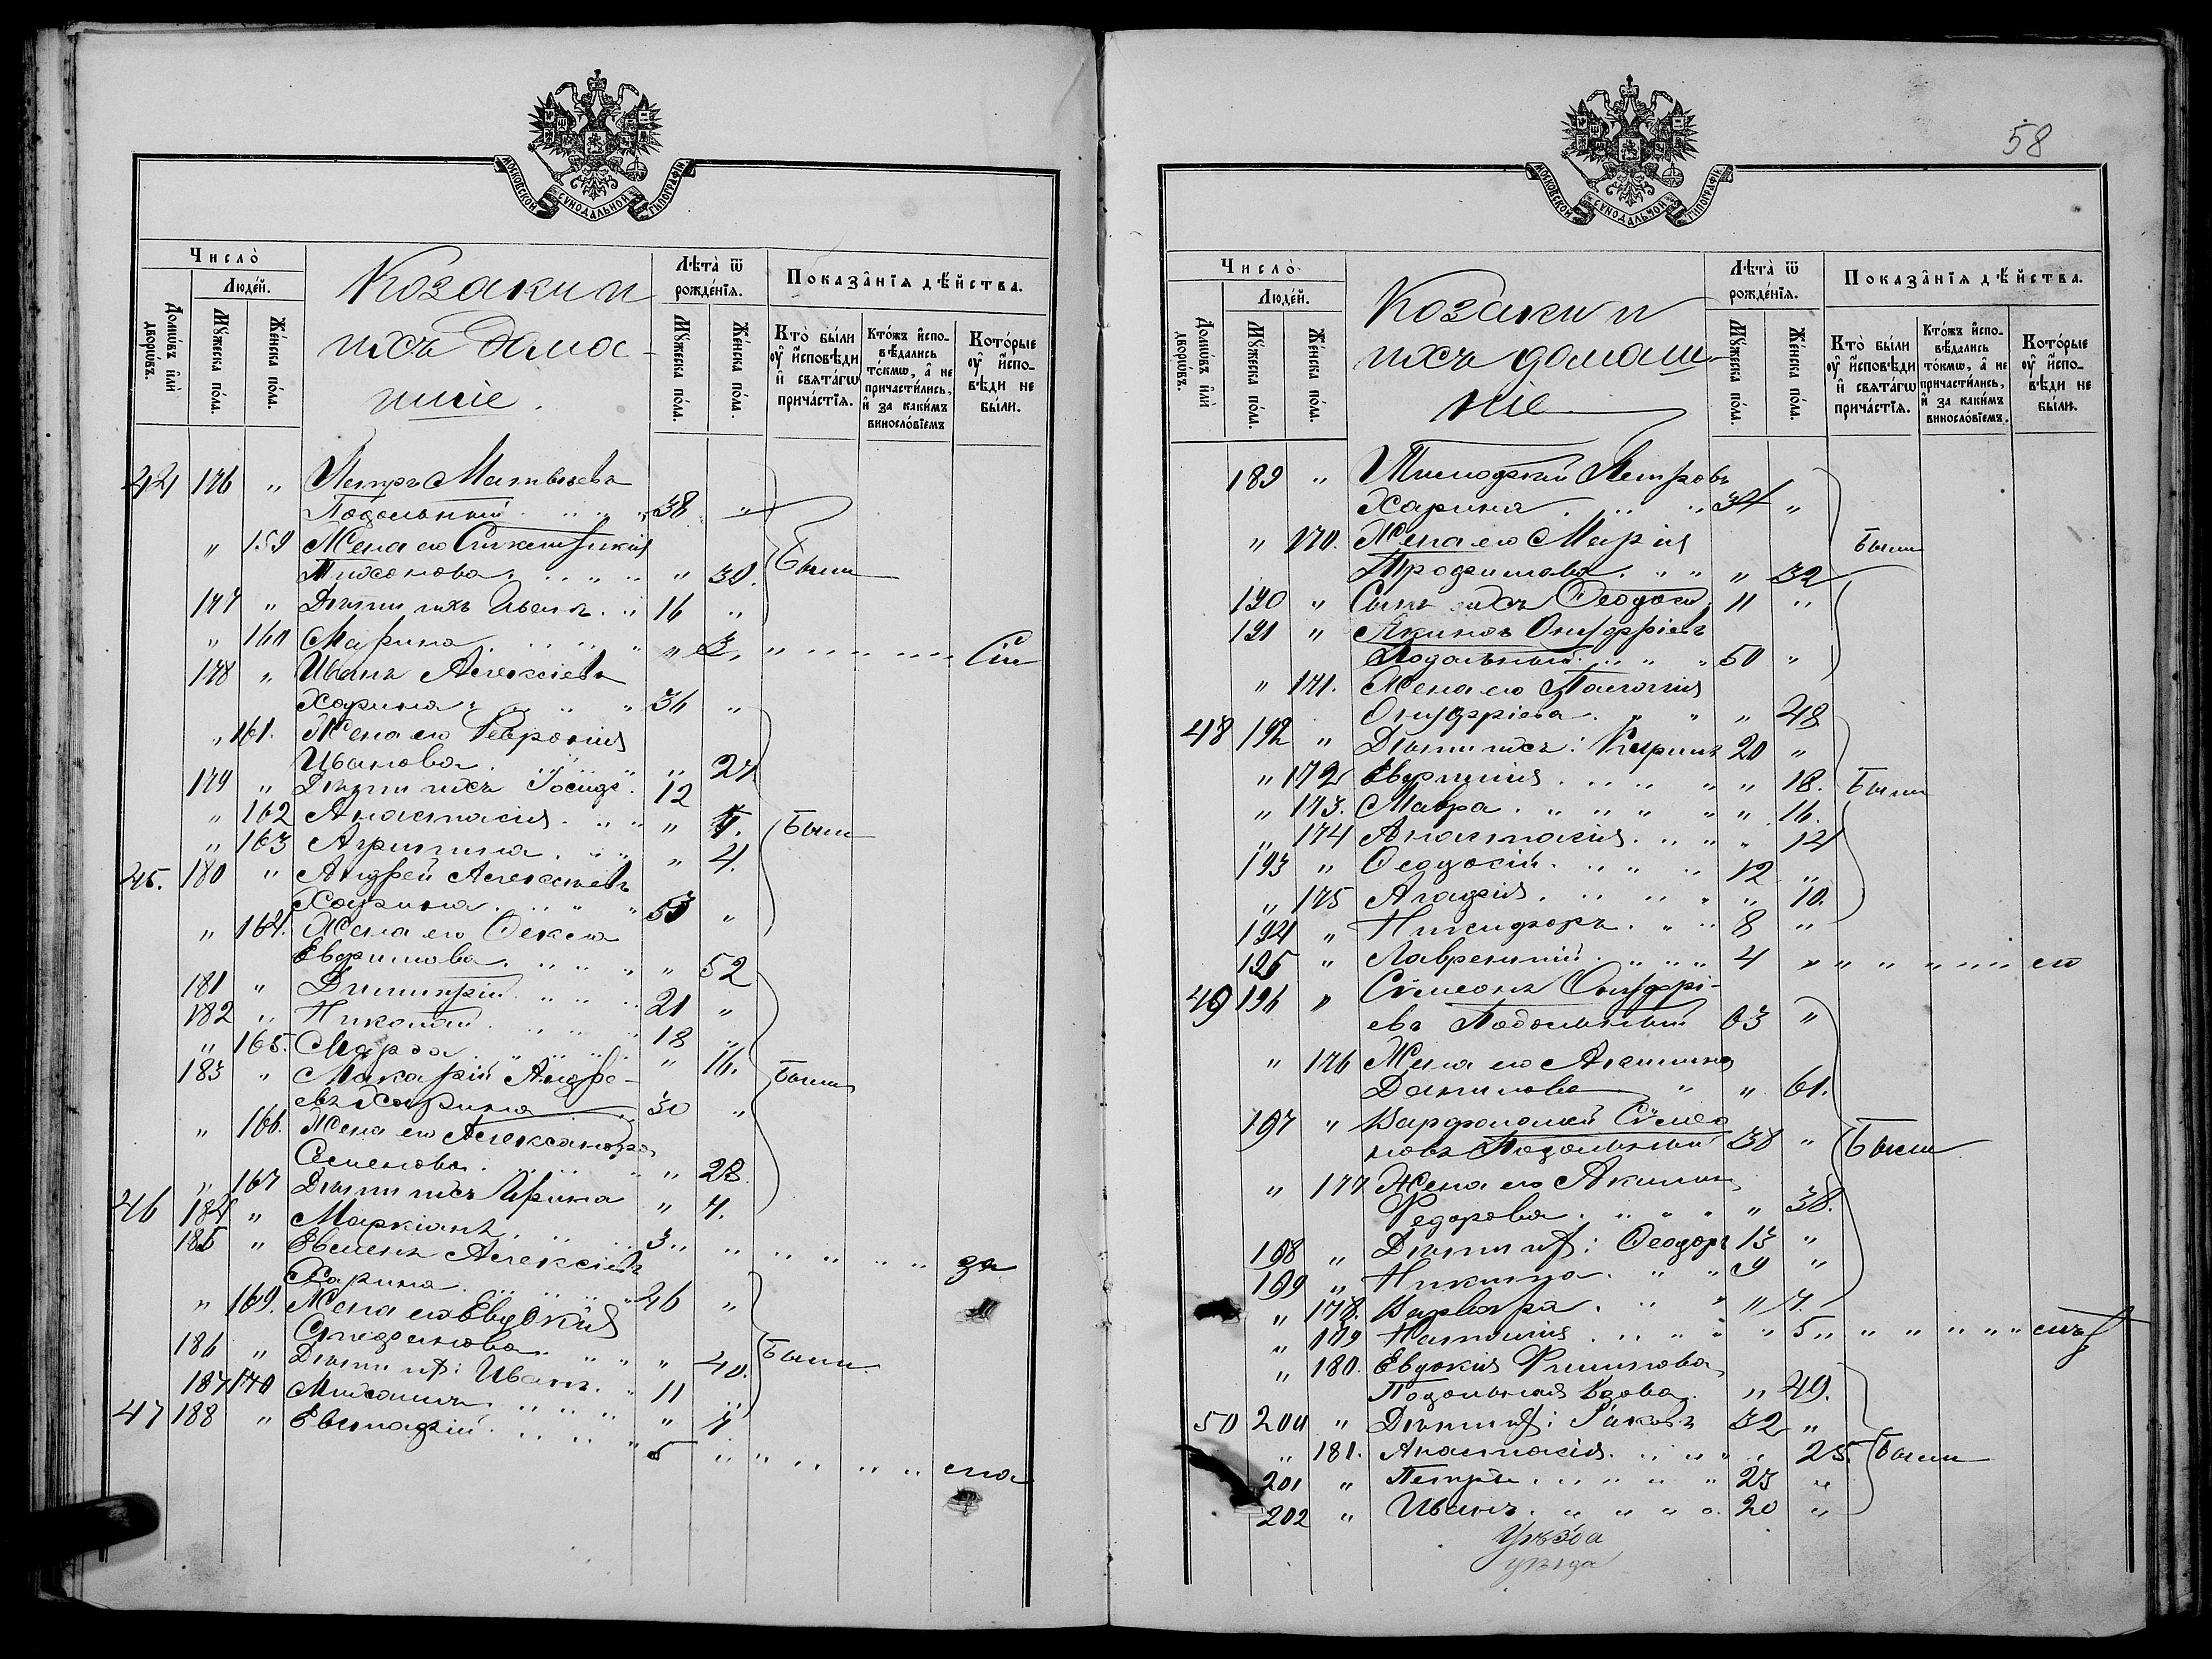 МОСКОВСКОЙ СѴНОДАЛЬНОЙ ТИПОГРАФІИ
Число̀
Люде́й.
Домѡ́въ и҆лѝ дворѡ́въ.
Мꙋ́жеска по́ла.
Же́нска по́ла.
Козаки и
ихъ дома-
шніе.
Лѣта̀ ѿ рожде́нїѧ.
Мꙋ́жеска по́ла.
Же́нска по́ла.
Показа̂нїѧ дѣ́йства.
Кто̀ бы́ли ᲂу҆ и҆сповѣ́ди и҆ свѧта́гѡ прича́стїѧ.
Кто́жъ и҆спо- вѣ́дались то́кмѡ, а҆ не причасти́лись, и҆ за каки́мъ виносло́вїемъ
Кото́рые ᲂу҆ и҆спо- вѣ́ди не бы́ли.
44 176 " Петръ Матвѣевъ
Подольный 38 "
" 159 Жена его
Тихонова " 30. Были
177 " Дѣти ихъ Иванъ 16 "
" 160 Марина " 3
178 " Иванъ Алексіевъ
Харина 36 "
" 161. Жена его Февронія
Иванова " 27
179 " Дѣти ихъ Іосифъ 12
" 162 Анастасія " 7. Были
" 163 Агрипина " 4.
45. 180 " Андрей Алексіевъ
Харина 53 "
" 164. Жена его Фекла
Евфимова " 52
181 " Димитрій 21 "
182 " Николай 18 "
" 165. Марѳа " 16.
183 " Макарій Андре- Были
евъ Харина 30 "
" 166. Жена его Александра
Семенова " 28.
" 167 Дѣти ихъ Ирина " 7.
46 184 " Маркіанъ 3
185 " Евменъ Алексіевъ за
Харина 46 "
" 169. Жена его Евдокія
Стефанова " 40. Были
186 " Дѣти их: Иванъ 11 "
187 170 Михаилъ " 7
47 188 " Евстафій 5
58
МОСКОВСКОЙ СѴНОДАЛЬНОЙ ТИПОГРАФІИ
Число̀
Люде́й.
Домѡ́въ и҆лѝ дворѡ́въ.
Мꙋ́жеска по́ла.
Же́нска по́ла.
Козаки и
ихъ домаш-
ніе
Лѣта̀ ѿ рожде́нїѧ.
Мꙋ́жеска по́ла.
Же́нска по́ла.
Показа̂нїѧ дѣ́йства.
Кто̀ бы́ли ᲂу҆ и҆сповѣ́ди и҆ свѧта́гѡ прича́стїѧ.
Кто́жъ и҆спо- вѣ́дались то́кмѡ, а҆ не причасти́лись, и҆ за каки́мъ виносло́вїемъ.
Кото́рые ᲂу҆ и҆спо- вѣ́ди не бы́ли.
189 " Тимоѳей Петровъ
Харина 34 "
" 170. Жена его Марія Были
Трофимова " 32
190 " Сынъ ихъ Ѳеодосій 11 "
191 " Якимъ Онуфріевъ
Подольный 50 "
" 171. Жена его Пелагія
Онуфріева " 48
48 192 " Дѣти ихъ: Кирилъ 20 "
" 172 Евфимія " 18. Были
" 173. Мавра " 16.
" 174 Анастасія " 14
193 " Ѳеодосій 12 "
" 175 Агафія " 10.
194 " Никифоръ 8 "
195 " Лаврентій 4 "
49 196 " Сѵмеонъ Онуфрі-
евъ Подольный 63 "
" 176 Жена его
Данилова " 61.
197 " Варфоломей Сѵмео
новъ Подольный 38 " Были
" 177 Жена его Акилина
Федорова " 38.
198 " Дѣти их: Ѳеодоръ 13 "
199 " Никита 9 "
" 178. Варвара " 7.
" 179 Наталія " 5
" 180. Евдокія Филипова
Подольная вдова " 49.
50 200 " Дѣти их: Іаковъ 32 "
" 181. Анастасія " 25. Были
201 " Петръ 23 "
202 " Иванъ 20 "
уѣзда
уѣзда